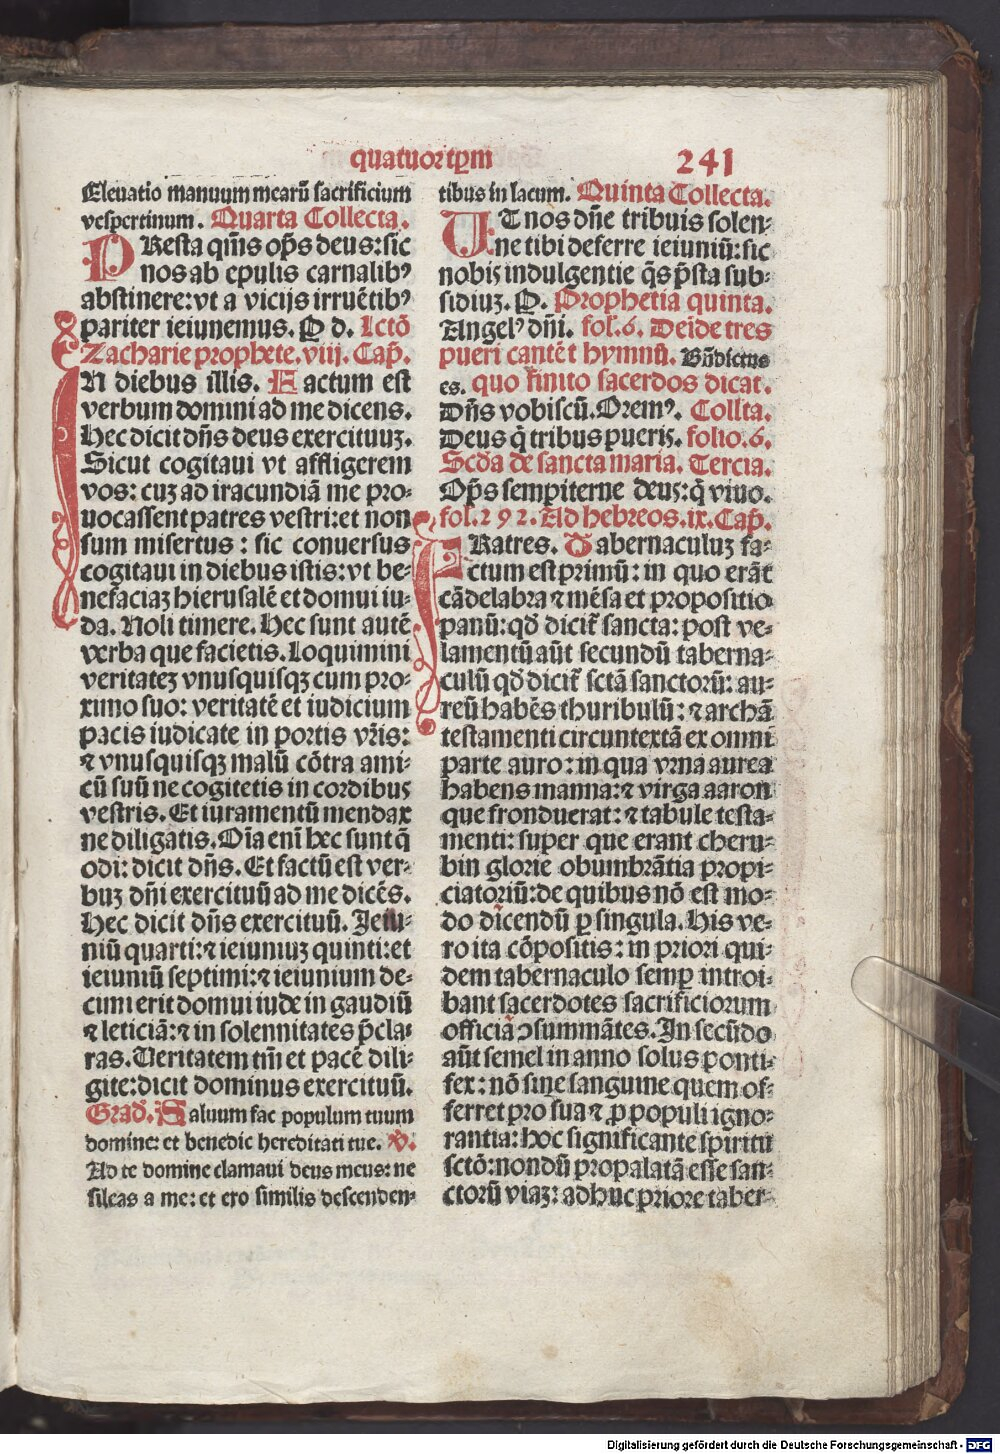 quatuortꝑm 241
Eleuatio manuum mearū sacrificium
vespertinum. Quarta Collecta.
PResta qm̄s op̄s deus: sic
nos ab epulis carnalibꝰ
abstinere: vt a vicijs irruētibꝰ
pariter ieiunemus. P d. Lctō
Zacharie prophete. viij. Cap̄.
IN diebus illis. Factum est
verbum domini ad me dicens.
Hec dicit dn̄s deus exercituuꝫ.
Sicut cogitaui vt affligerem
vos: cuꝫ ad iracundiā me pro⸗
uocassent patres vestri: et non
sum misertus: sic conuersus
cogitaui in diebus istis: vt be⸗
nefaciaꝫ hierusalē et domui iu⸗
da. Noli timere. Hec sunt autē
verba que facietis. Loquimini
veritateꝫ vnusquisqꝫ cum pro⸗
ximo suo: veritatē et iudicium
pacis iudicate in portis vr̄is:
⁊ vnusquisqꝫ malū cōtra ami⸗
cū suū ne cogitetis in cordibus
vestris. Et iuramentū mendax
ne diligatis. Oīa enī hec sunt q̄
odi: dicit dn̄s. Et factū est ver⸗
buꝫ dn̄i exercituū ad me dicēs.
Hec dicit dn̄s exercituū. Ieiu⸗
niū quarti: ⁊ ieiuniuꝫ quinti: et
ieiuniū septimi: ⁊ ieiunium de⸗
cimi erit domui iude in gaudiū
⁊ leticiā: ⁊ in solennitates p̄cla⸗
ras. Veritatem tm̄ et pacē dili⸗
gite: dicit dominus exercituū.
Grad̄. Saluum fac populum tuum
domine: et benedic hereditati tue. V̄.
Ad te domine clamaui deus meus: ne
sileas a me: et ero similis descenden⸗
tibus in lacum. Quinta Collecta.
UT nos dn̄e tribuis solen⸗
ne tibi deferre ieiuniū: sic
nobis indulgentie q̄s p̄sta sub⸗
sidiuꝫ. P. Prophetia quinta.
Angelꝰ dn̄i. fol. 6. Deīde tres
pueri cantēt hymnū. Bn̄dictus
es. quo finito sacerdos dicat.
Dn̄s vobiscū. Oremꝰ. Collta.
Deus q̇ tribus pueris. folio. 6.
Scd̄a de sancta maria. Tercia.
Op̄s sempiterne deus: q̇ viuo.
fol. 292. Ad hebreos. ix. Cap̄.
FRatres. Tabernaculuꝫ fa⸗
ctum est primū: in quo erāt
cādelabra ⁊ mēsa et propositio
panū: qd̄ dicit̄ sancta: post ve⸗
lamentū aūt secundū taberna⸗
culū qd̄ dicit̄ sctā sanctorū: au⸗
reū habēs thuribulū: ⁊ archā
testamenti circuntextā ex omni
parte auro: in qua vrna aurea
habens manna: ⁊ virga aaron
que fronduerat: ⁊ tabule testa⸗
menti: super que erant cheru⸗
bin glorie obumbrātia propi⸗
ciatoriū: de quibus nō est mo⸗
do dicendū ꝑ singula. His ve⸗
ro ita cōpositis: in priori qui⸗
dem tabernaculo semꝑ introi⸗
bant sacerdotes sacrificiorum
officiā ↄsummātes. In secūdo
aūt semel in anno solus ponti⸗
fex: nō sine sanguine quem of⸗
ferret pro sua ⁊ ꝓ populi igno⸗
rantia: hoc significante spiritu
sctō: nondū propalatā esse san⸗
ctorū viaꝫ: adhuc priore taber⸗
Digitalisierung gefördert durch die Deutsche Forschungsgemeinschaft - DFG